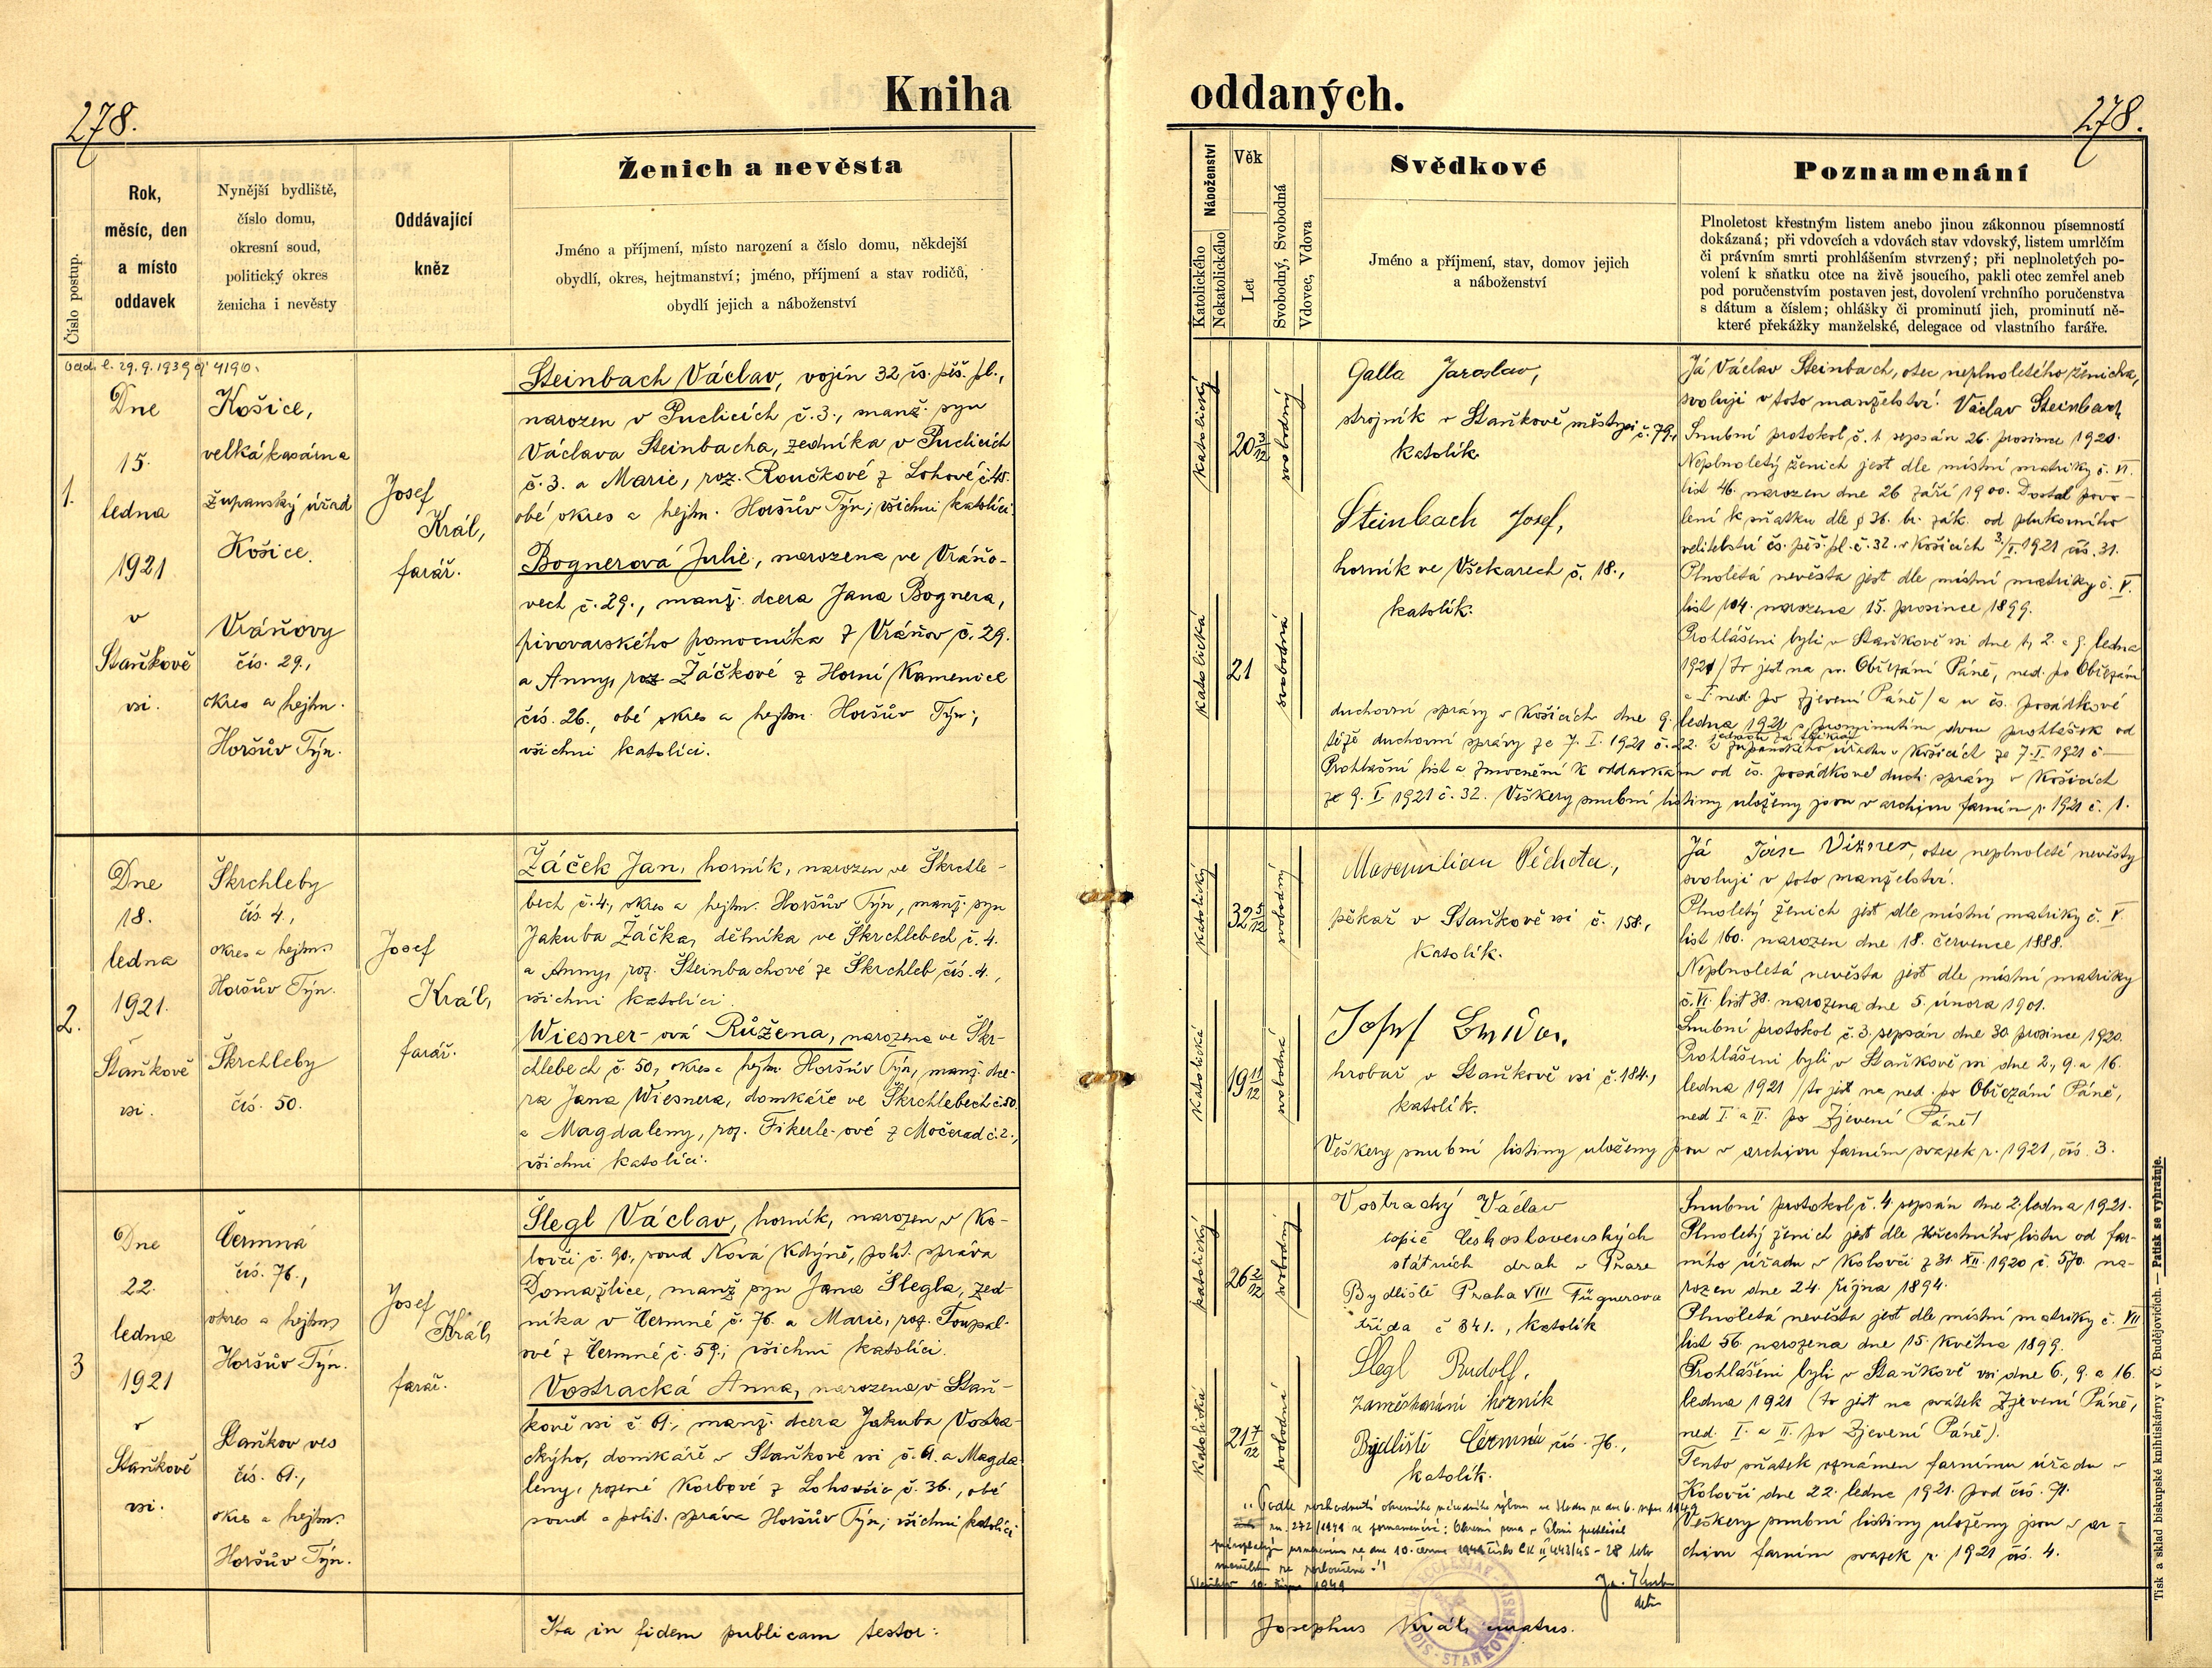 Kniha oddaných.
278.
278.
Číslo postup.
Rok,
měsíc, den
a místo
oddavek
Nynější bydliště,
číslo domu,
okresní soud,
politický okres
ženicha i nevěsty
Oddávající
kněz
Ženich a nevěsta
Jméno a příjmení, místo narození a číslo domu, někdejší
obydlí, okres, hejtmanství; jméno, příjmení a stav rodičů,
obydlí jejich a náboženství
Náboženství
Katolického
Nekatolického
Věk
Let
Svobodný, Svobodná
Vdovec, Vdova
Svědkové
Jméno a příjmení, stav, domov jejich
a náboženství
Poznamenání
Plnoletost křestným listem anebo jinou zákonnou písemností
dokázaná; při vdovcích a vdovách stav vdovský, listem umrlčím
či právním smrti prohlášením stvrzený; při neplnoletých po-
volení k sňatku otce na živě jsoucího, pakli otec zemřel aneb
pod poručenstvím postaven jest, dovolení vrchního poručenstva
s dátum a číslem; ohlášky či prominutí jich, prominutí ně-
které překážky manželské, delegace od vlastního faráře.
29.9.1939 čj 4190.
1.
Dne
15.
ledna
1921
v
Staňkově
vsi.
Košice,
velká kasárna
Županský úřad
Košice.
Vráňovy
čís. 29.,
okres a hejtm.
Horšův Týn.
Josef
Král,
farář.
Steinbach Václav, vojín 32 čs. pěš. pl.,
narozen v Puclicích č. 3., manž. syn
Václava Steinbacha, zedníka v Puclicích
č. 3. a Marie, roz. Roučkové z Lohové č. 48.
obé okres a hejtm. Horšův Týn; všichni katolíci.
Bognerová Julie, narozena ve Vráňo-
vech č. 29., manž. dcera Jana Bognera,
pivovarského pomocníka z Vráňov č. 29.
a Anny, roz Žáčkové z Horní Kamenice
čís. 26., obé okres a hejtm. Horšův Týn;
všichni katolíci.
katolický
20 3/12
svobodný
katolická
21
svobodná
Galla Jaroslav,
strojník v Staňkově městysi č. 79.,
katolík.
Steinbach Josef,
horník ve Všekarech č. 18.,
katolík.
Já Václav Steinbach, otec neplnoletého ženicha,
svoluji v toto manželství. Václav Steinbach
Snubní protokol č. 1 sepsán 26. prosince 1920.
Neplnoletý ženich jest dle místní matriky č. VI.
list 46. narozen dne 26 září 1900. Dostal povo-
lení k sňatku dle § 36. br. zák. od plukovního
velitelství čs. pěš. pl. č. 32. v Košicích 3/I. 1921 čís. 31.
Plnoletá nevěsta jest dle místní matriky č. V.
list 104. narozena 15. prosince 1899.
Prohlášeni byli v Staňkově vsi dne 1, 2. a 9. ledna
1921 / to jest na sv. Obřezání Páně, ned. po Obřezání
a I. ned. po Zjevení Páně / a u čs. posádkové
duchovní správy v Košicích dne 9. ledna 1921 s prominutím dvou prohlášek od
téže duchovní správy ze 7. I. 1921 č. 22. a županského úřadu v Košicích ze 7. I. 1921 č —
Prohlašní list a zmocnění k oddavkám od čs. posádkové duch. správy v Košicích
ze 9. I. 1921 č. 32. Veškery snubní listiny uloženy jsou v archivu farním r. 1921 č. 1.
2.
Dne
18.
ledna
1921.
Staňkově
vsi.
Škrchleby
čís. 4.,
okres a hejtm.
Horšův Týn.
Škrchleby
čís. 50.
Josef
Král,
farář.
Žáček Jan, horník, narozen ve Škrchle-
bech č. 4., okres a hejtm. Horšův Týn, manž. syn
Jakuba Žáčka, dělníka ve Škrchlebech č. 4.
a Anny, roz. Šteinbachové ze Škrchleb čís. 4.,
všichni katolíci.
Wiesner-ová Růžena, narozena ve Škr-
chlebech č. 50, okres a hejtm. Horšův Týn, manž. dce-
ra Jana Wiesnera, domkáře ve Škrchlebech č. 50.
a Magdaleny, roz. Fikerle-ové z Močerad č. 2.,
všichni katolíci.
katolický
32 5/12
svobodný
katolická
19 11/12
svobodná
Maxmilian Pěchota,
pekař v Staňkově vsi č. 158.,
katolík.
Josef
hrobař v Staňkově vsi č. 184.,
katolík.
Já Vizner, otec neplnoleté nevěsty
svoluji v toto manželství.
Plnoletý ženich jest dle místní matriky č. V.
list 160. narozen dne 18. července 1888.
Neplnoletá nevěsta jest dle místní matriky
č. VI. list 30. narozena dne 5. února 1901.
Snubní protokol č. 3. sepsán dne 30. prosince 1920.
Prohlášeni byli v Staňkově vsi dne 2., 9. a 16.
ledna 1921 / to jest na ned. po Obřezání Páně,
ned I. a II. po Zjevení Páně /
Veškery snubní listiny uloženy jsou v archivu farním svazek r. 1921, čís. 3.
3
Dne
22.
ledna
1921
v
Staňkově
vsi.
Čermná
čís. 76.,
okres a hejtm.
Horšův Týn.
Staňkov ves
čís. 61.,
okres a hejtm.
Horšův Týn.
Josef
Král,
farář.
Šlegl Václav, horník, narozen v Ko-
lovči č. 90., soud Nová Kdyně, polit. správa
Domažlice, manž syn Jana Šlegla, zed-
níka v Čermné č. 76. a Marie, roz. Toupal-
ové z Čermné č. 59.; všichni katolíci.
Vostracká Anna, narozena v Staň-
kově vsi č. 61., manž. dcera Jakuba Vostra-
ckýho, domkáře v Staňkově vsi č. 61. a Magda
leny, rozené Korbové z Lohovčic č. 36., obé
soud a polit. správa Horšův Týn; všichni katolíci
katolický
26 2/12
svobodný
katolická
21 7/12
svobodná
Vostracký Václav
topič Československých
státních drah v Praze
Bydliště Praha VIII Fügnerova
třída č 341., katolík
Šlegl Rudolf,
zaměstnání horník
Bydliště Čermná čís. 76.,
katolík.
Snubní protokol č. 4 sepsán dne 2. ledna 1921.
Plnoletý ženich jest dle křestního listu od far-
ního úřadu v Kolovči z 31. XII. 1920 č. 570. na-
rozen dne 24. října 1894.
Plnoletá nevěsta jest dle místní matriky č. VII
list 56. narozena dne 15. května 1899.
Prohlášeni byli v Staňkově vsi dne 6., 9. a 16.
ledna 1921 (to jest na svátek Zjevení Páně,
ned. I. a II. po Zjevení Páně).
Tento sňatek oznámen farnímu úřadu v
Kolovči dne 22. ledna 1921. pod čís. 71.
Veškery snubní listiny uloženy jsou v ar-
chivu farním svazek r. 1921 čís. 4.
Podle rozhodnutí okresního národního výboru ve dne 6. 1949
zn. 272/1949 se poznamenává:
ze dne 10. června 1946 číslo Ck II 443/45 - 28
manželství
10. října 1949
Ita in fidem publicam testor:
Josephus Král, curatus.
Tisk a sklad biskupské knihtiskárny v Č. Budějovicích. — Patisk se vyhražuje.